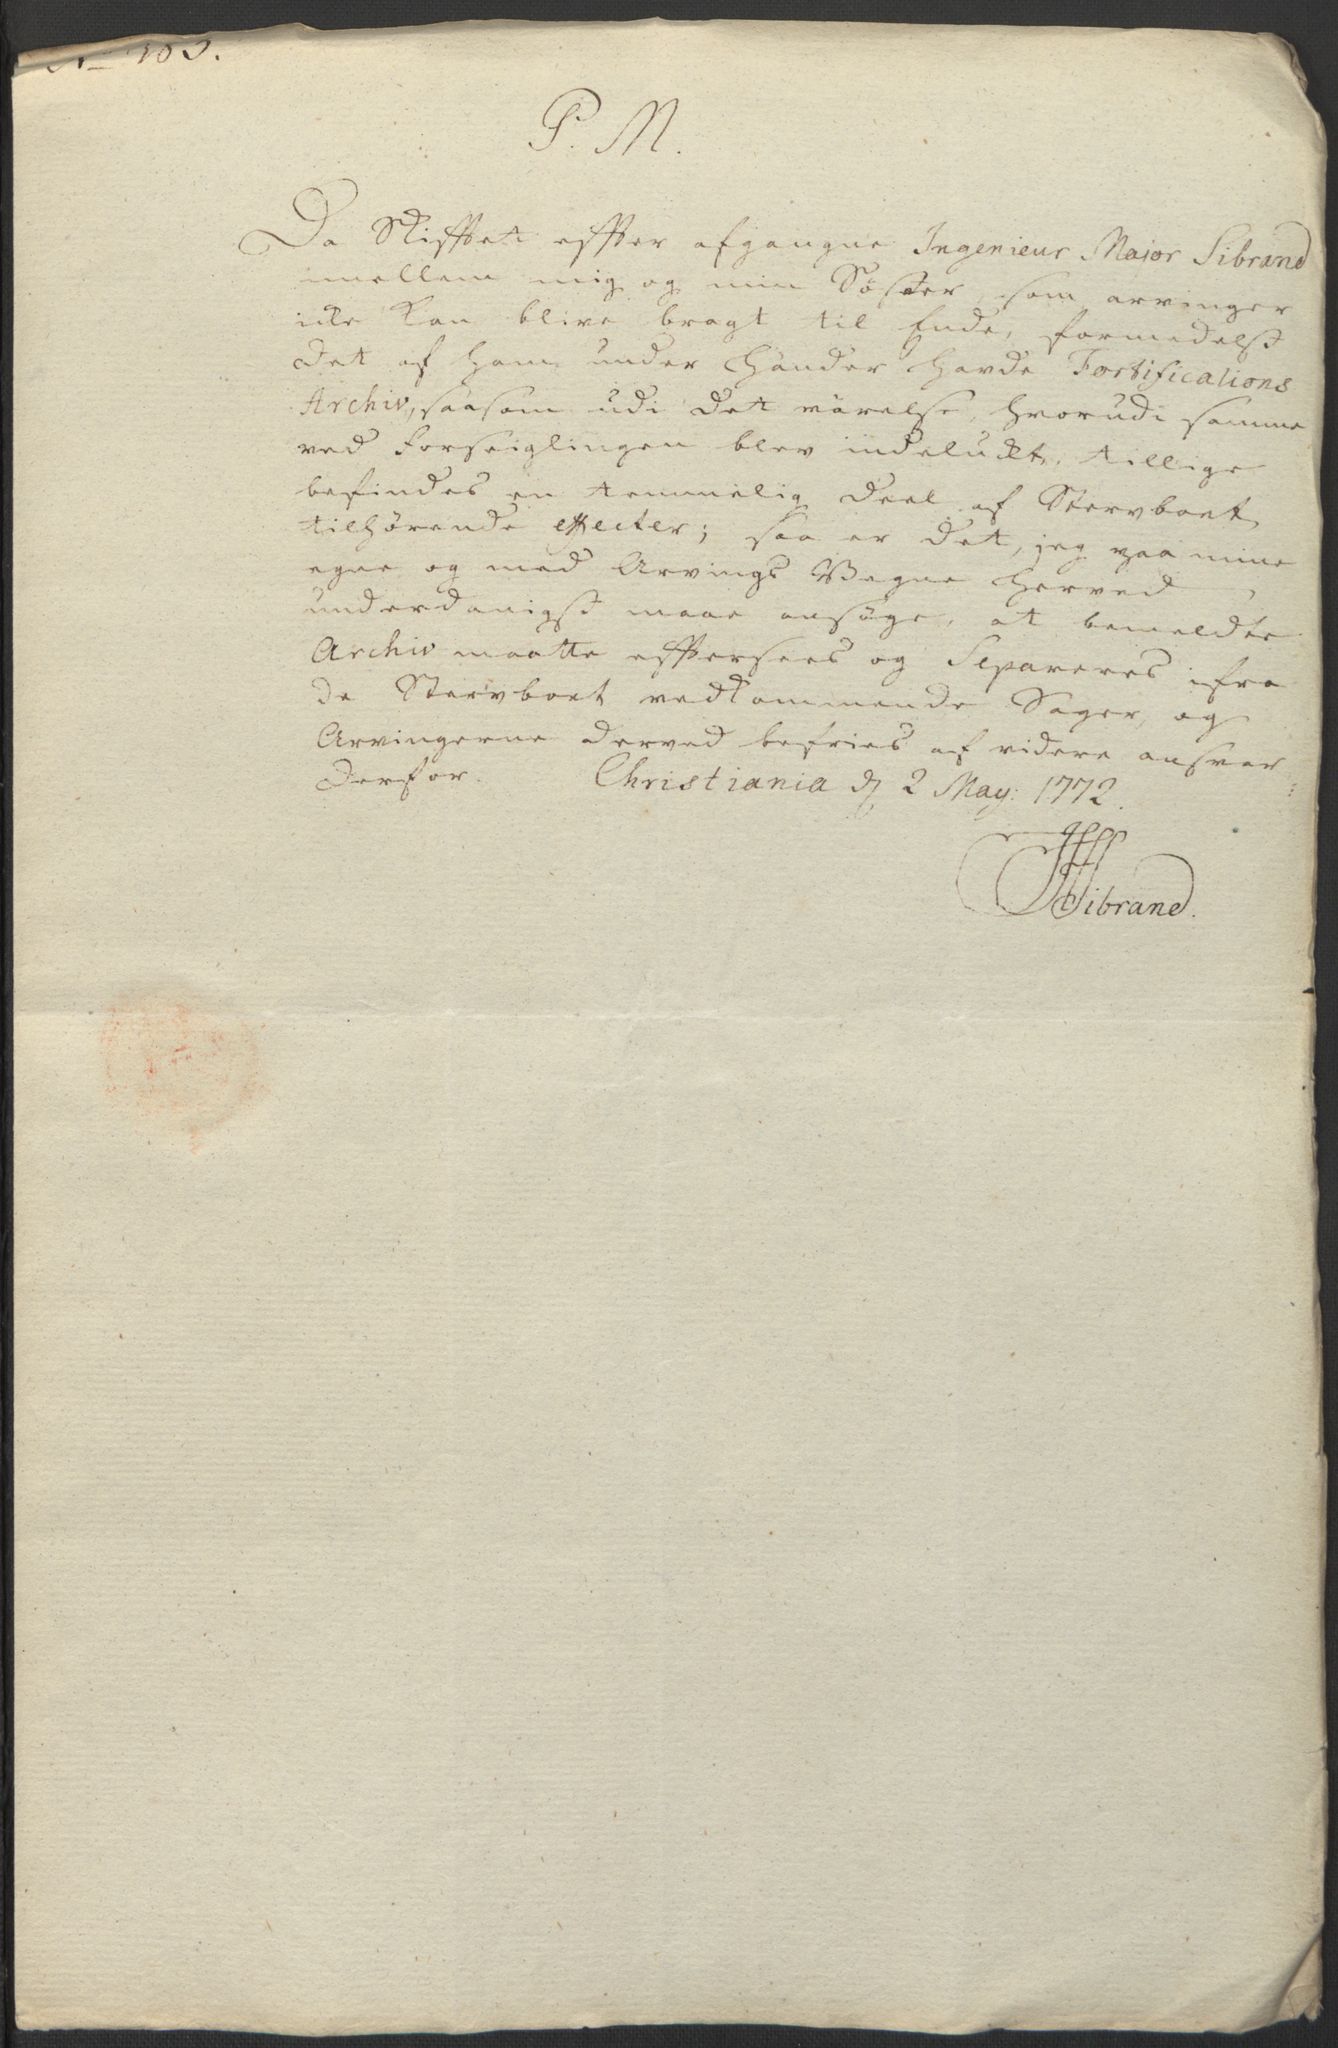 No 103.
P. M.
Da Skifftet effter afgangne Ingenieur Major Sibrand
imellem mig og min Söster, som arvinger
icke kan blive bragt til Ende, formedelst
det af ham under hænder havde Fortifications
Archiv, saasom udi det værelse, hvorudi samme
ved Forseiglingen blev indelukt, tillige
befindes en temmelig deel af Stervboet
tilhørende effecter; saa er det, jeg paa mine
egne og med Arvings Vegne herved
underdanigst maae ansøge, at bemeldte
Archiv maatte efftersees og Separeres ifra
de Stervboet vedkommende Sager, og
Arvingerne derved befries af videre ansvar
derfor. Christiania d 2 May: 1772.
Sibrand.